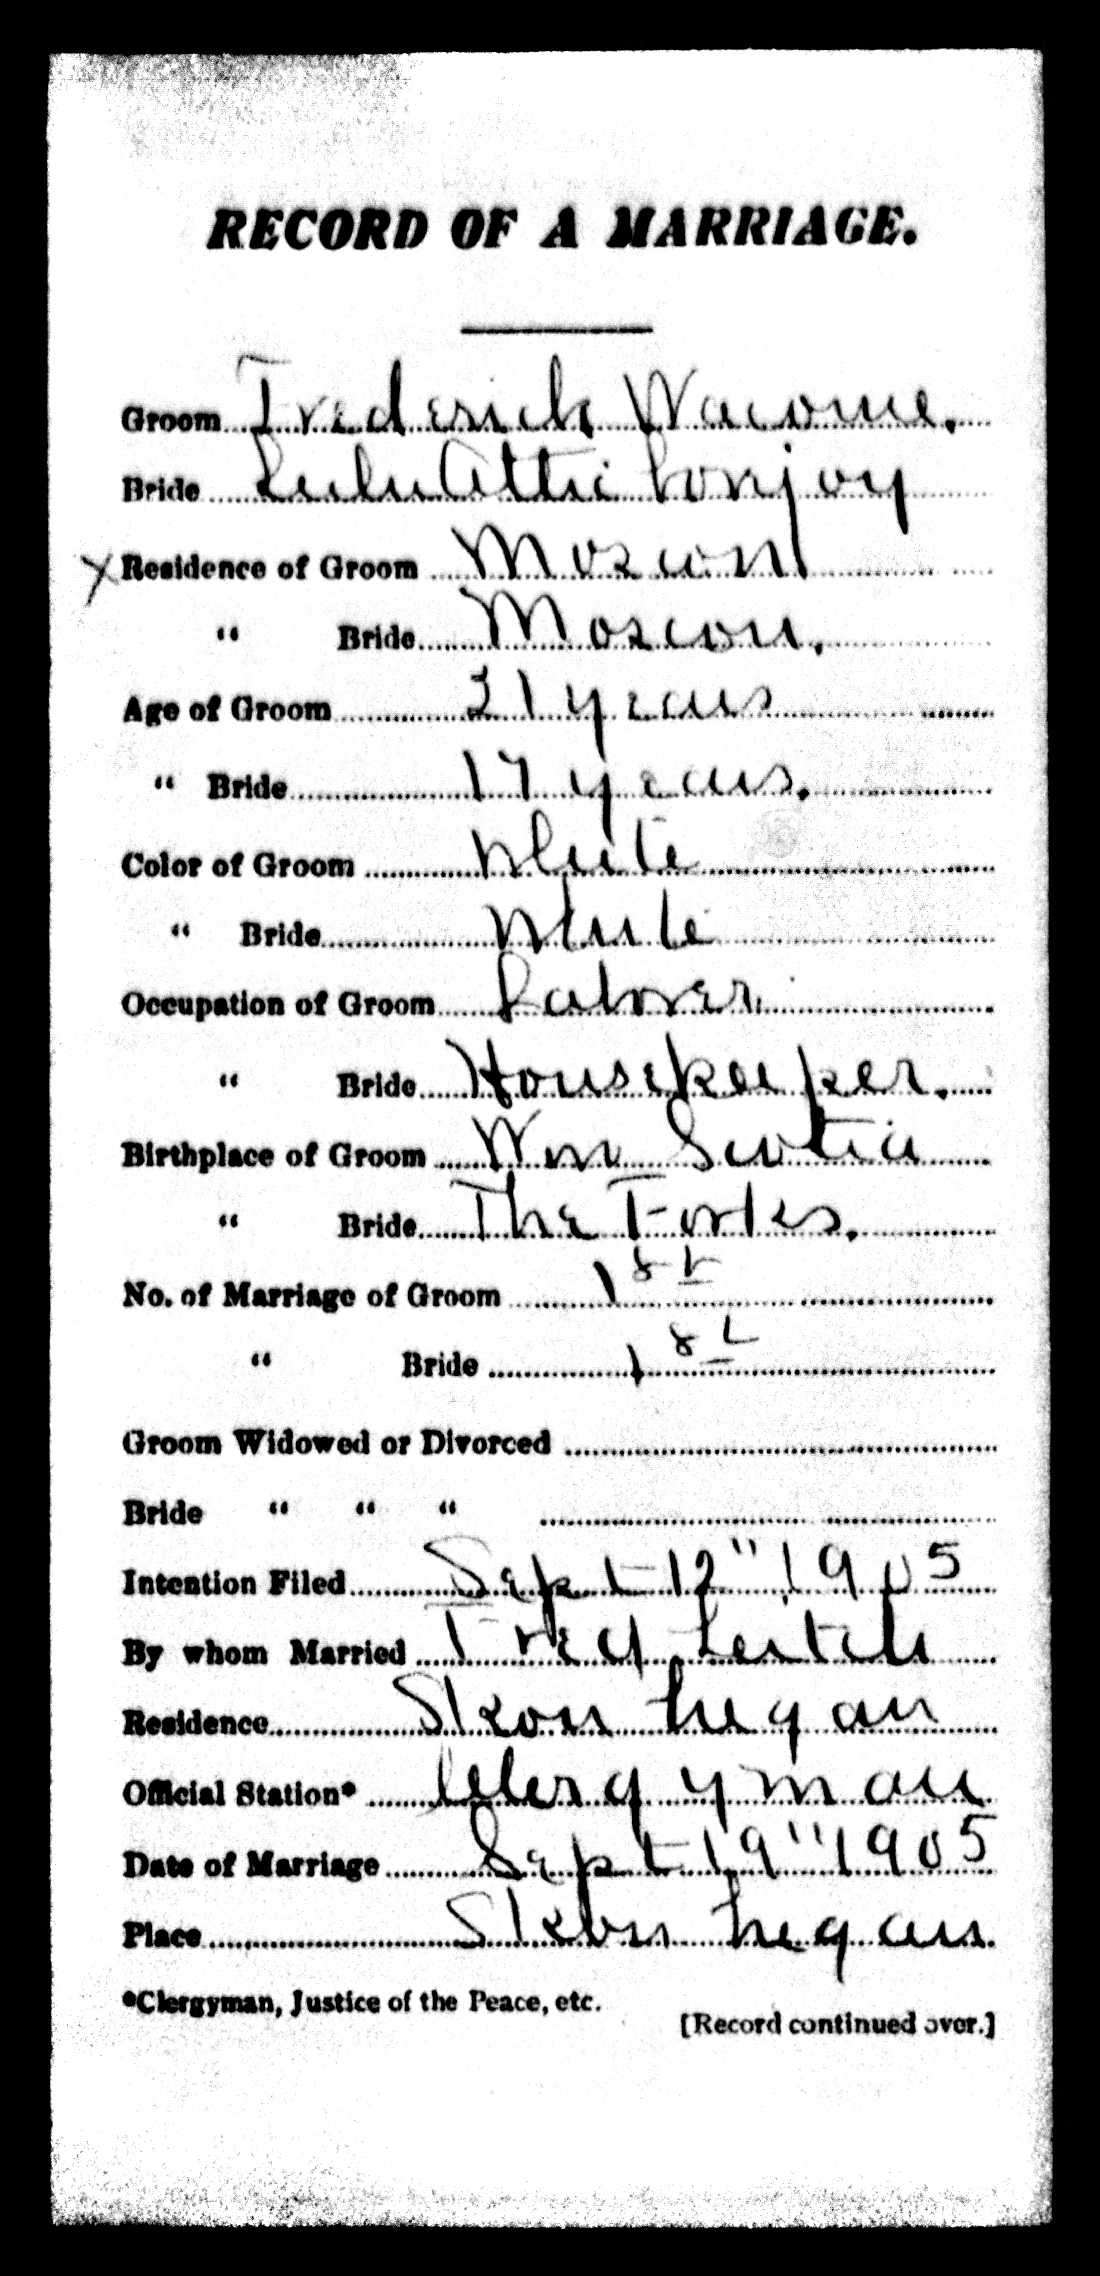 RECORD OF A MARRIAGE.
Groom Frederick Wacome.
Bride Lulu Attie Lonjoy
Residence of Groom Moscow
" Bride Moscow.
Age of Groom 21 years
" Bride 17 years.
Color of Groom White
" Bride White
Occupation of Groom Labrer
" Bride Housekeeper.
Birthplace of Groom Nov Scotia
" Bride The Forks.
No. of Marriage of Groom 1st
" Bride 1st
Groom Widowed or Divorced
Bride " " "
Intention Filed Sept 12" 1905
By whom Married Fred Leitch
Residence Skowhegan
Official Station* Clergyman
Date of Marriage Sept 19" 1905
Place Skowhegan.
*Clergyman, Justice of the Peace, etc.
[Record continued over.]